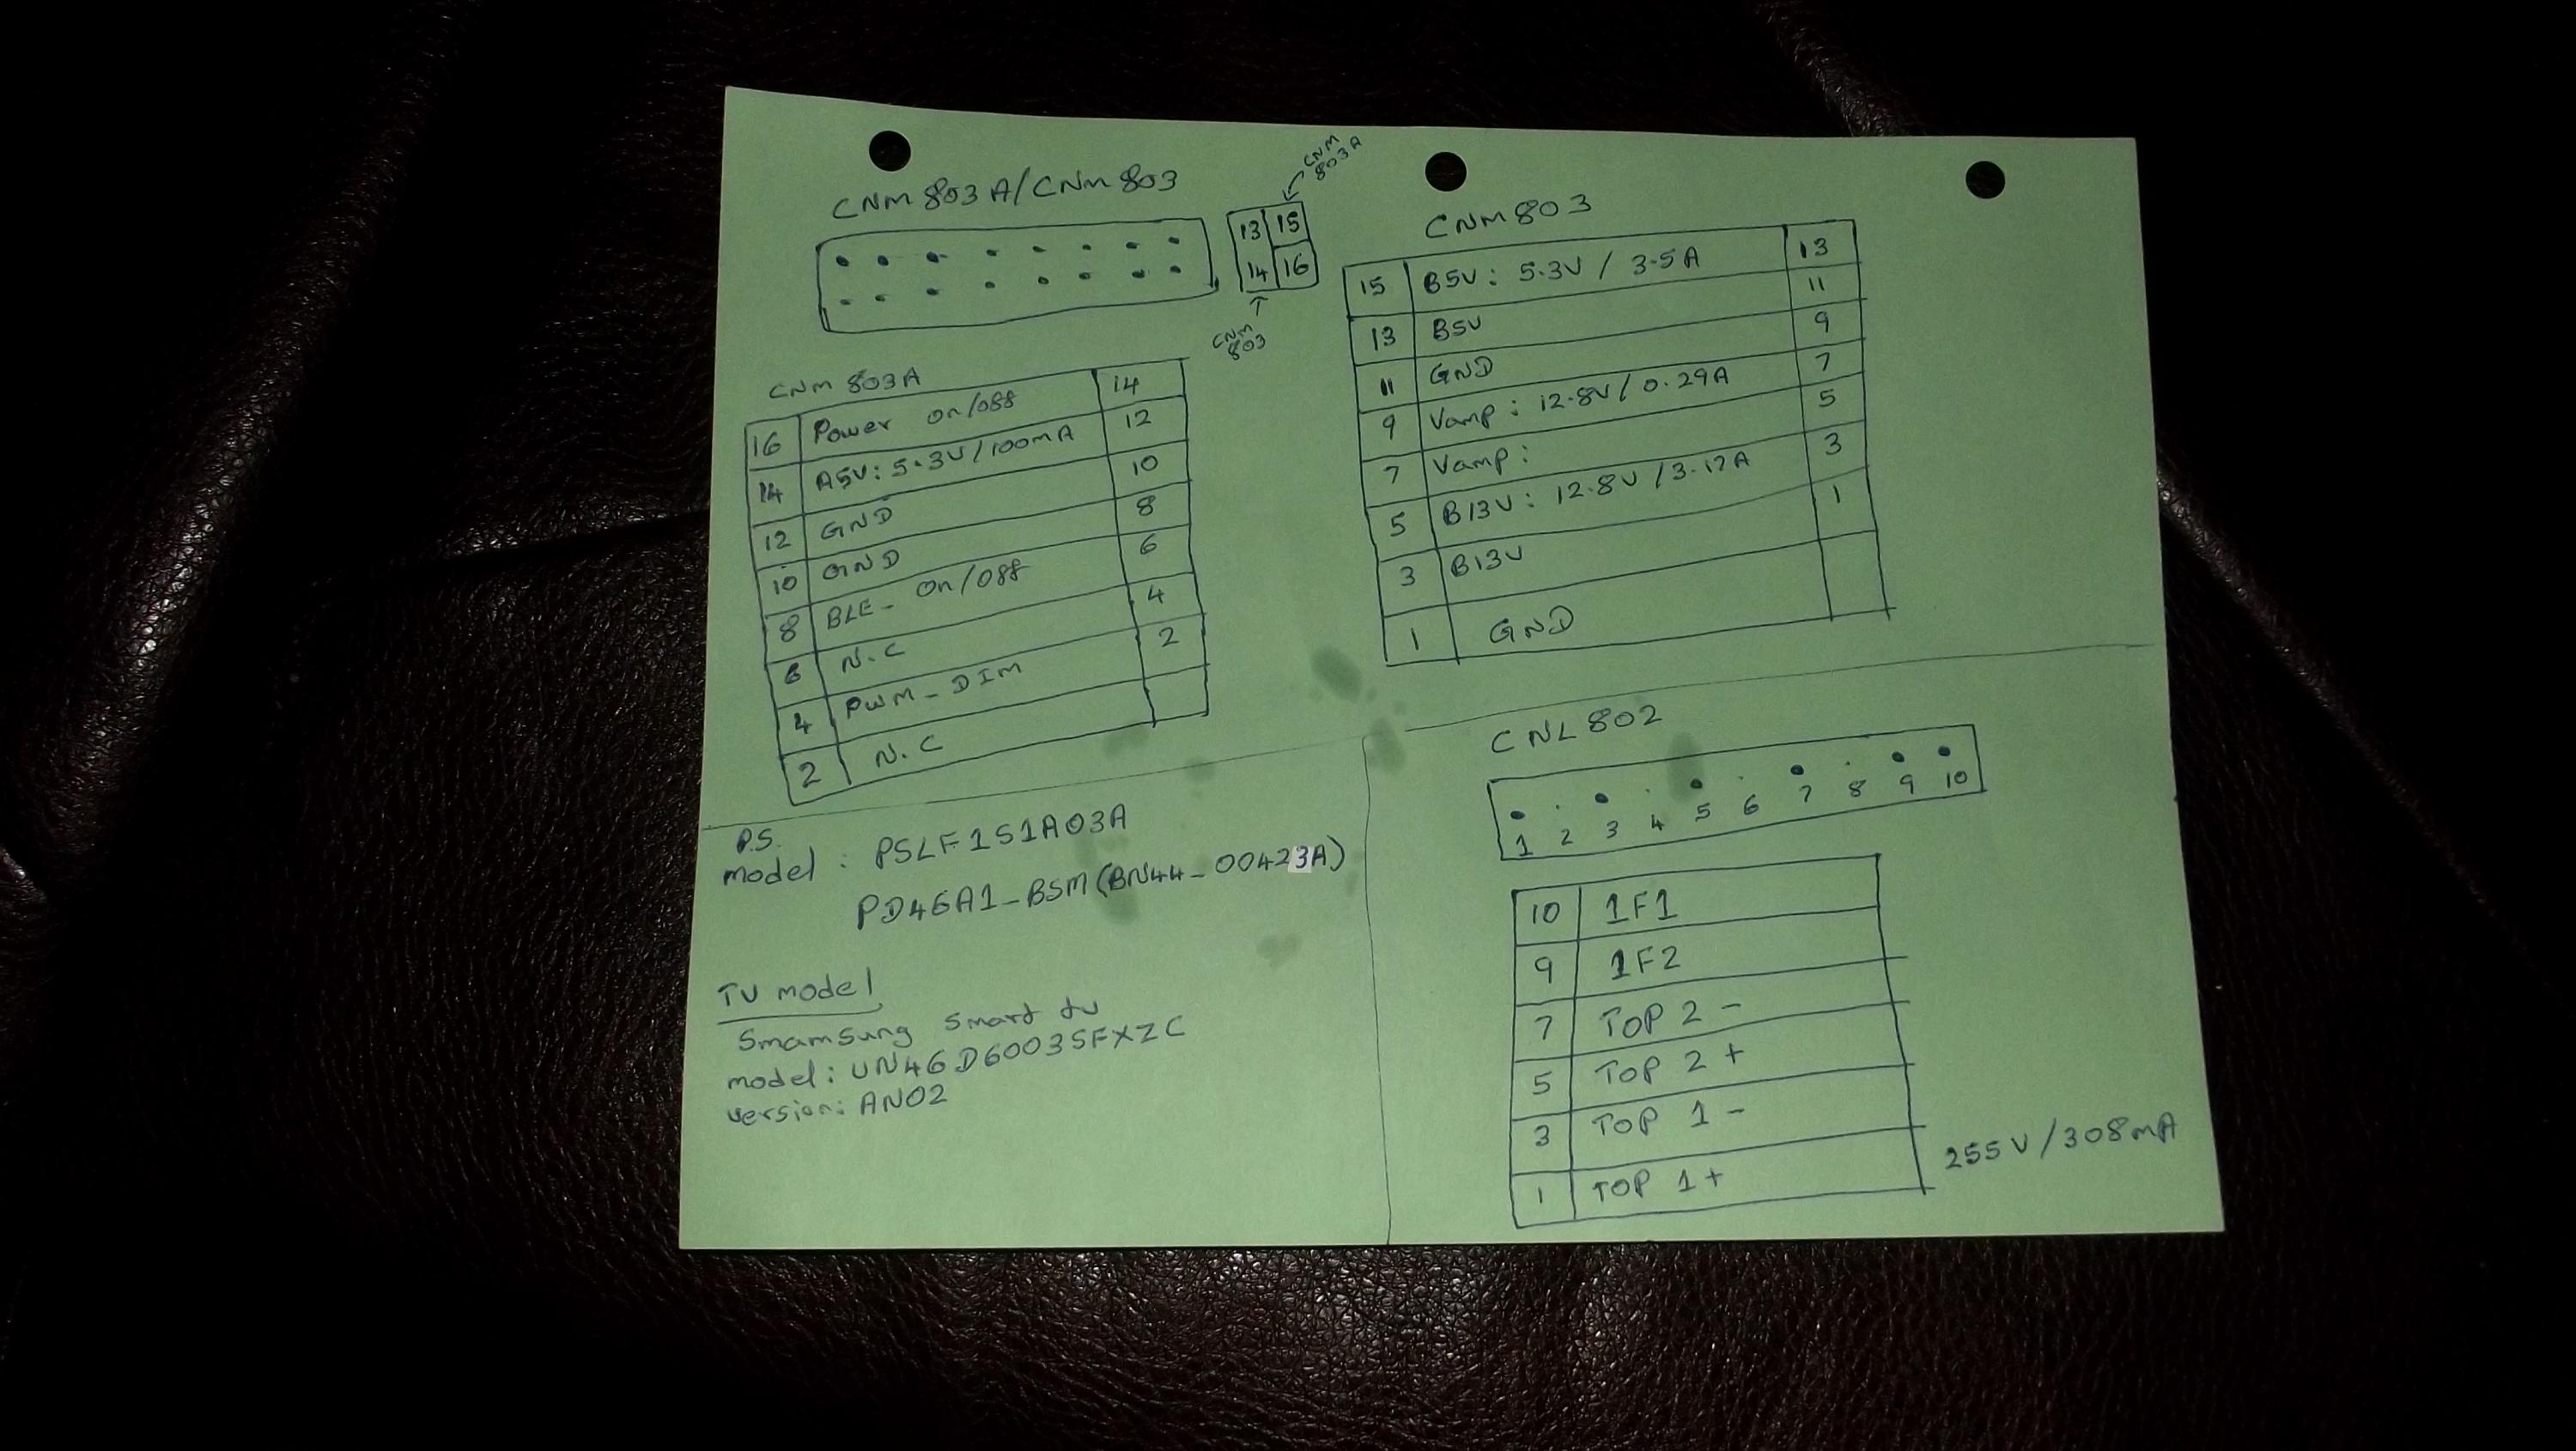 CNM803A/CNM803
13 15
14 16
CNM
803A
CNM
803
CNM 803A
16 Power on/off 14
14 A5V: 5.3V/100mA 12
12 GND 10
10 GND 8
8 BLE- on/off 6
6 N.C 4
4 PWM-DIM 2
2 N.C
CNM803
15 B5V: 5.3V / 3.5A 13
13 B5V 11
11 GND 9
9 Vamp: 12.8V/0.29A 7
7 Vamp: 5
5 B13V: 12.8V/3.17A 3
3 B13V 1
1 GND
P.S.
model: PSLF151A03A
PD46A1-BSM(BN44-00423A)
TV model
Smamsung smart tv
model: UN46D6003SFXZC
version: AN02
CNL802
1 2 3 4 5 6 7 8 9 10
10 1F1
9 1F2
7 TOP 2 -
5 TOP 2 +
3 TOP 1 -
1 TOP 1+
255V/308mA